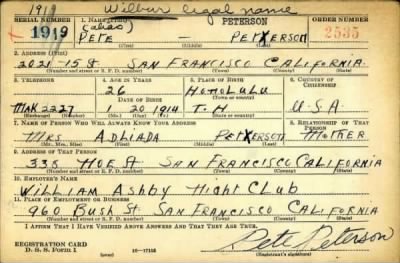 1919 Wilbur legal name
SERIAL NUMBER 1. NAME (Print) PETERSON ORDER NUMBER
(alias)
1919 PETE PETERSON 2535
(First) (Middle) (Last)
2. ADDRESS (Print)
2021-15th SAN FRANCISCO CALIFORNIA
(Number and street or R. F. D. number) (Town) (County) (State)
3. TELEPHONE 4. AGE IN YEARS 5. PLACE OF BIRTH 6. COUNTRY OF CITIZENSHIP
26 HONOLULU
DATE OF BIRTH (Town or county)
MAK 2227 1 20 1914 T.H USA
(Exchange) (Number) (Mo.) (Day) (Yr.) (State or country)
7. NAME OF PERSON WHO WILL ALWAYS KNOW YOUR ADDRESS 8. RELATIONSHIP OF THAT PERSON
MRS ADLIADA PETERSON MOTHER
(Mr., Mrs., Miss) (First) (Middle) (Last)
9. ADDRESS OF THAT PERSON
338 ST SAN FRANCISCO CALIFORNIA
(Number and street or R. F. D. number) (Town) (County) (State)
10. EMPLOYER'S NAME
WILLIAM ASHBY NIGHT CLUB
11. PLACE OF EMPLOYMENT OR BUSINESS
960 BUSH ST. SAN FRANCISCO CALIFORNIA
(Number and street or R. F. D. number) (Town) (County) (State)
I AFFIRM THAT I HAVE VERIFIED ABOVE ANSWERS AND THAT THEY ARE TRUE.
REGISTRATION CARD
D. S. S. Form 1 16-17105 Pete Peterson
(Registrant's signature)